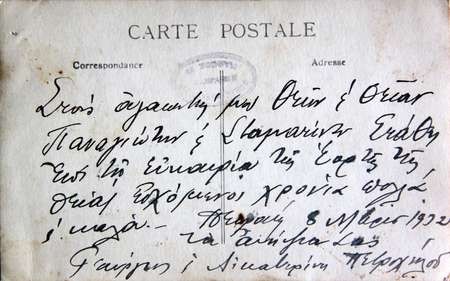 CARTE POSTALE
Correspondance Adresse
Στούς ἀγαπητούς μου Θεῖον ἐ Θείαν
Παναγιώτην ἐ Σταματίνην Στάθη
Ἐπί τῇ εὐκαιρία τῆς ἑορτῆς τῆς
θείας εὐχόμενοι χρόνια πολά
ἐ καλά. — Πειραιεύς 8 1932
τα ἀνήψια σας
Γεώργης ἐ Αικατερίνη